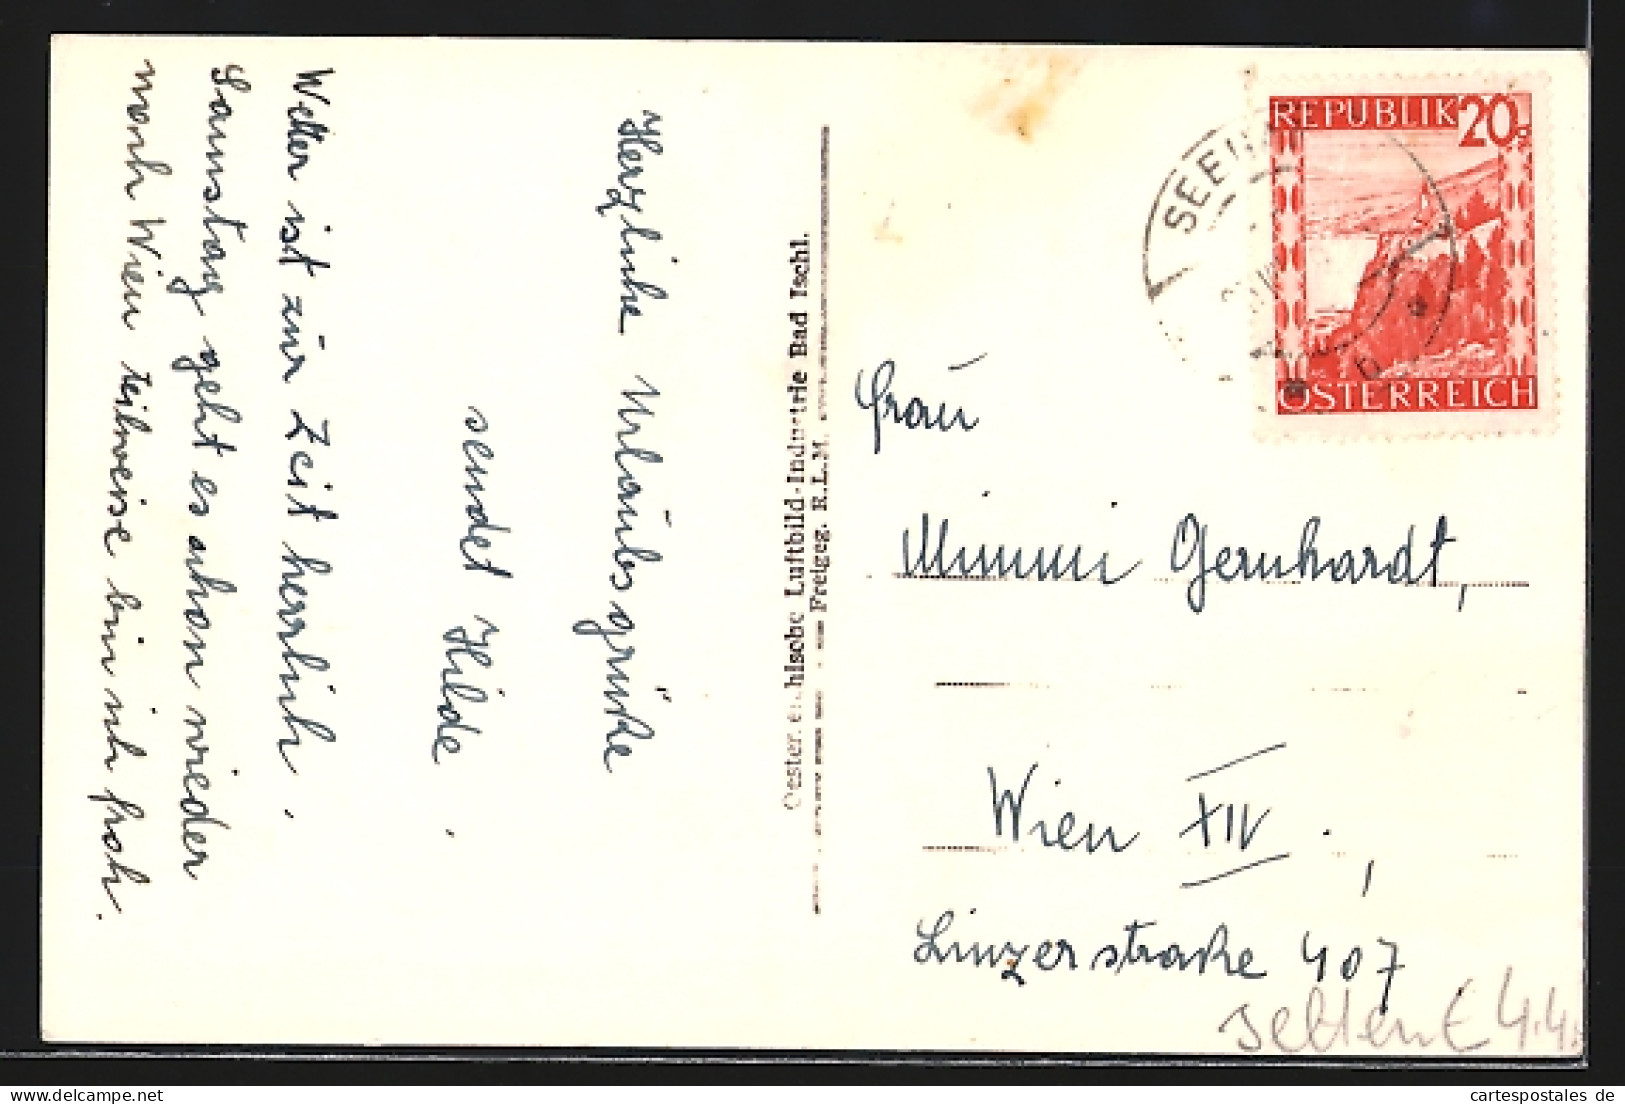 Herzliche Urlaubsgrüße
sendet Hilde.
Wetter ist zur Zeit herrlich.
Samstag geht es schon wieder
nach Wien teilweise bin ich froh.
Oesterreichische Luftbild-Industrie Bad Ischl.
Freigeg. R.L.M.
REPUBLIK 20g
ÖSTERREICH
Frau
Mimmi Gernhardt,
Wien XIV.,
Linzerstraße 407
selten € 4.4
cartespostales de